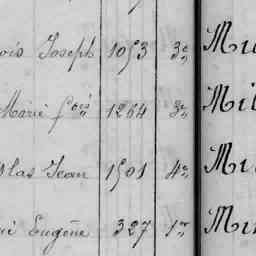 ois Joseph 1053 3e Mu
Marie fçois 1264 3e Mil
olas Jean 1501 4e Mi
né Eugène 327 1er Min